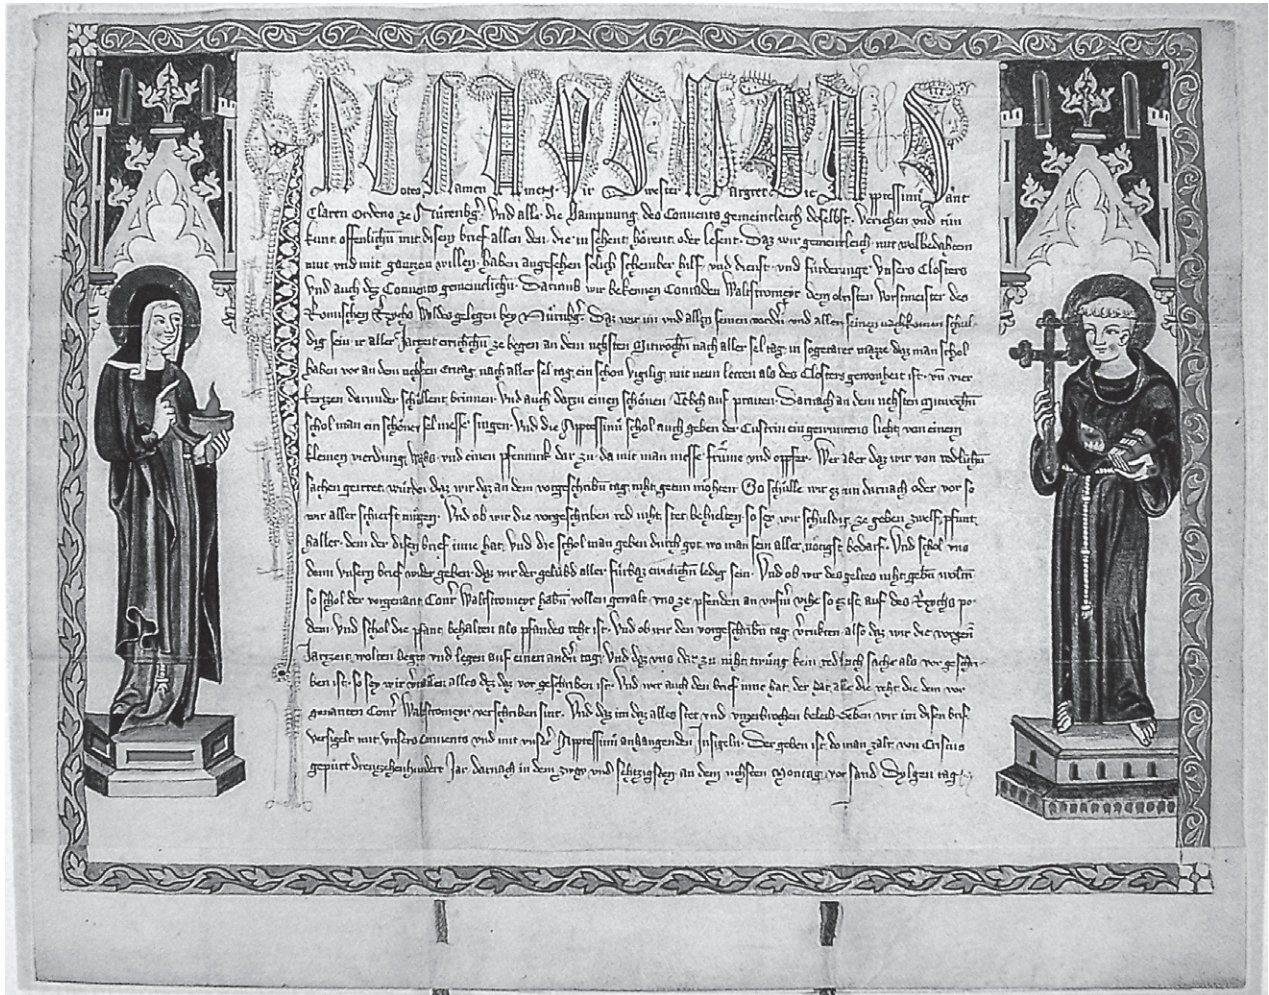 In Gotes Namen Amen. Wir Swester Margret die Apptessinn Sant
Claren ordens ze Nürenbg. Vnd alle die Sampnung des Conuents gemeincleich deselbst. Veriehen vnd tün
kunt offenlichn mit disem brief allen den die in sehent hörent oder lesent. Daz wir gemeinleich mit wolbedahtem
mut vnd mit ganczen willen haben angesehen solich scheinber hilf vnd dienst vnd fürderunge vnsers Closters
vnd auch dez Conuents gemeinclichn. Darumb wir bekennen Conraden Walstromeyr dem obristen Vorstmeister des
Römischen Reychs Waldes gelegen bey Nürnbg. Daz wir im vnd allen seinen vordn vnd allen seinen nachkomen schul-
dig sein ir aller Jarzeit ewichchn ze begen an dem nehsten Mitwochn nach aller sel tag in sogetaner maze daz man schol
haben vor an dem nehsten Eritag nach aller sel tag ein schon Vigilig mit neun leccen als des Closters gewonheit ist. vn vier
kerzen darunder schüllent brinnen. Vnd auch darzu einen schönen Tebch auf praiten. Darnach an dem nehsten Mitwochn
schol man ein schöne sel messe singen. Vnd die Apptessinn schol auch geben der Custrin ein gewuntens lieht von einem
kleinen vierdung wahs vnd einen pfennink dar zu da mit man messe frume vnd opffer. Wer aber daz wir von redlichn
sachen geirret würden daz wir dez an dem vorgeschribn tag niht getun möhten So schülle wir ez tun darnach oder vor so
wir aller schierst mügen. Vnd ob wir die vorgeschriben red niht stet behielten so sey wir schuldig ze geben zwelf pfunt
haller dem der disen brief inne hat. Vnd die schol man geben durch got wo man sein aller nötigst bedarf. Vnd schol vns
denn vnsern brief wider geben daz wir der gelübd aller fürbaz ewichchn ledig sein. Vnd ob wir des geltes niht gebn wolten
so schol der vorgenant Conr Walstromeyr habn vollen gewalt vns ze pfenden an vnserm vihe so ez ist auf des Reychs po-
dem. Vnd schol die pfant behalten als pfandes reht ist. Vnd ob wir den vorgeschribn tag verrukten also daz wir die vorgen
Jarzeit wolten begen vnd legen auf einen andn tag Vnd daz vns dar zu niht twüng kein redlich sache als vor geschri-
ben ist. so sey wir vervallen alles dez daz vor geschriben ist. Vnd wer auch den brief inne hat der hat alle die reht die dem vor
genanten Conr Walstromeyr verschriben sint. Vnd daz im daz alles stet vnd vnzerbrochen beleib Geben wir im disen brif
versigelt mit vnsers Conuents vnd mit vnsr Apptessinn anhangenden Insigeln. Der geben ist do man zalt von Cristus
gepürt dreuzehenhundert Jar darnach in dem zwey vnd sehtzigsten an dem nehsten Montag vor sand Gylgen tag